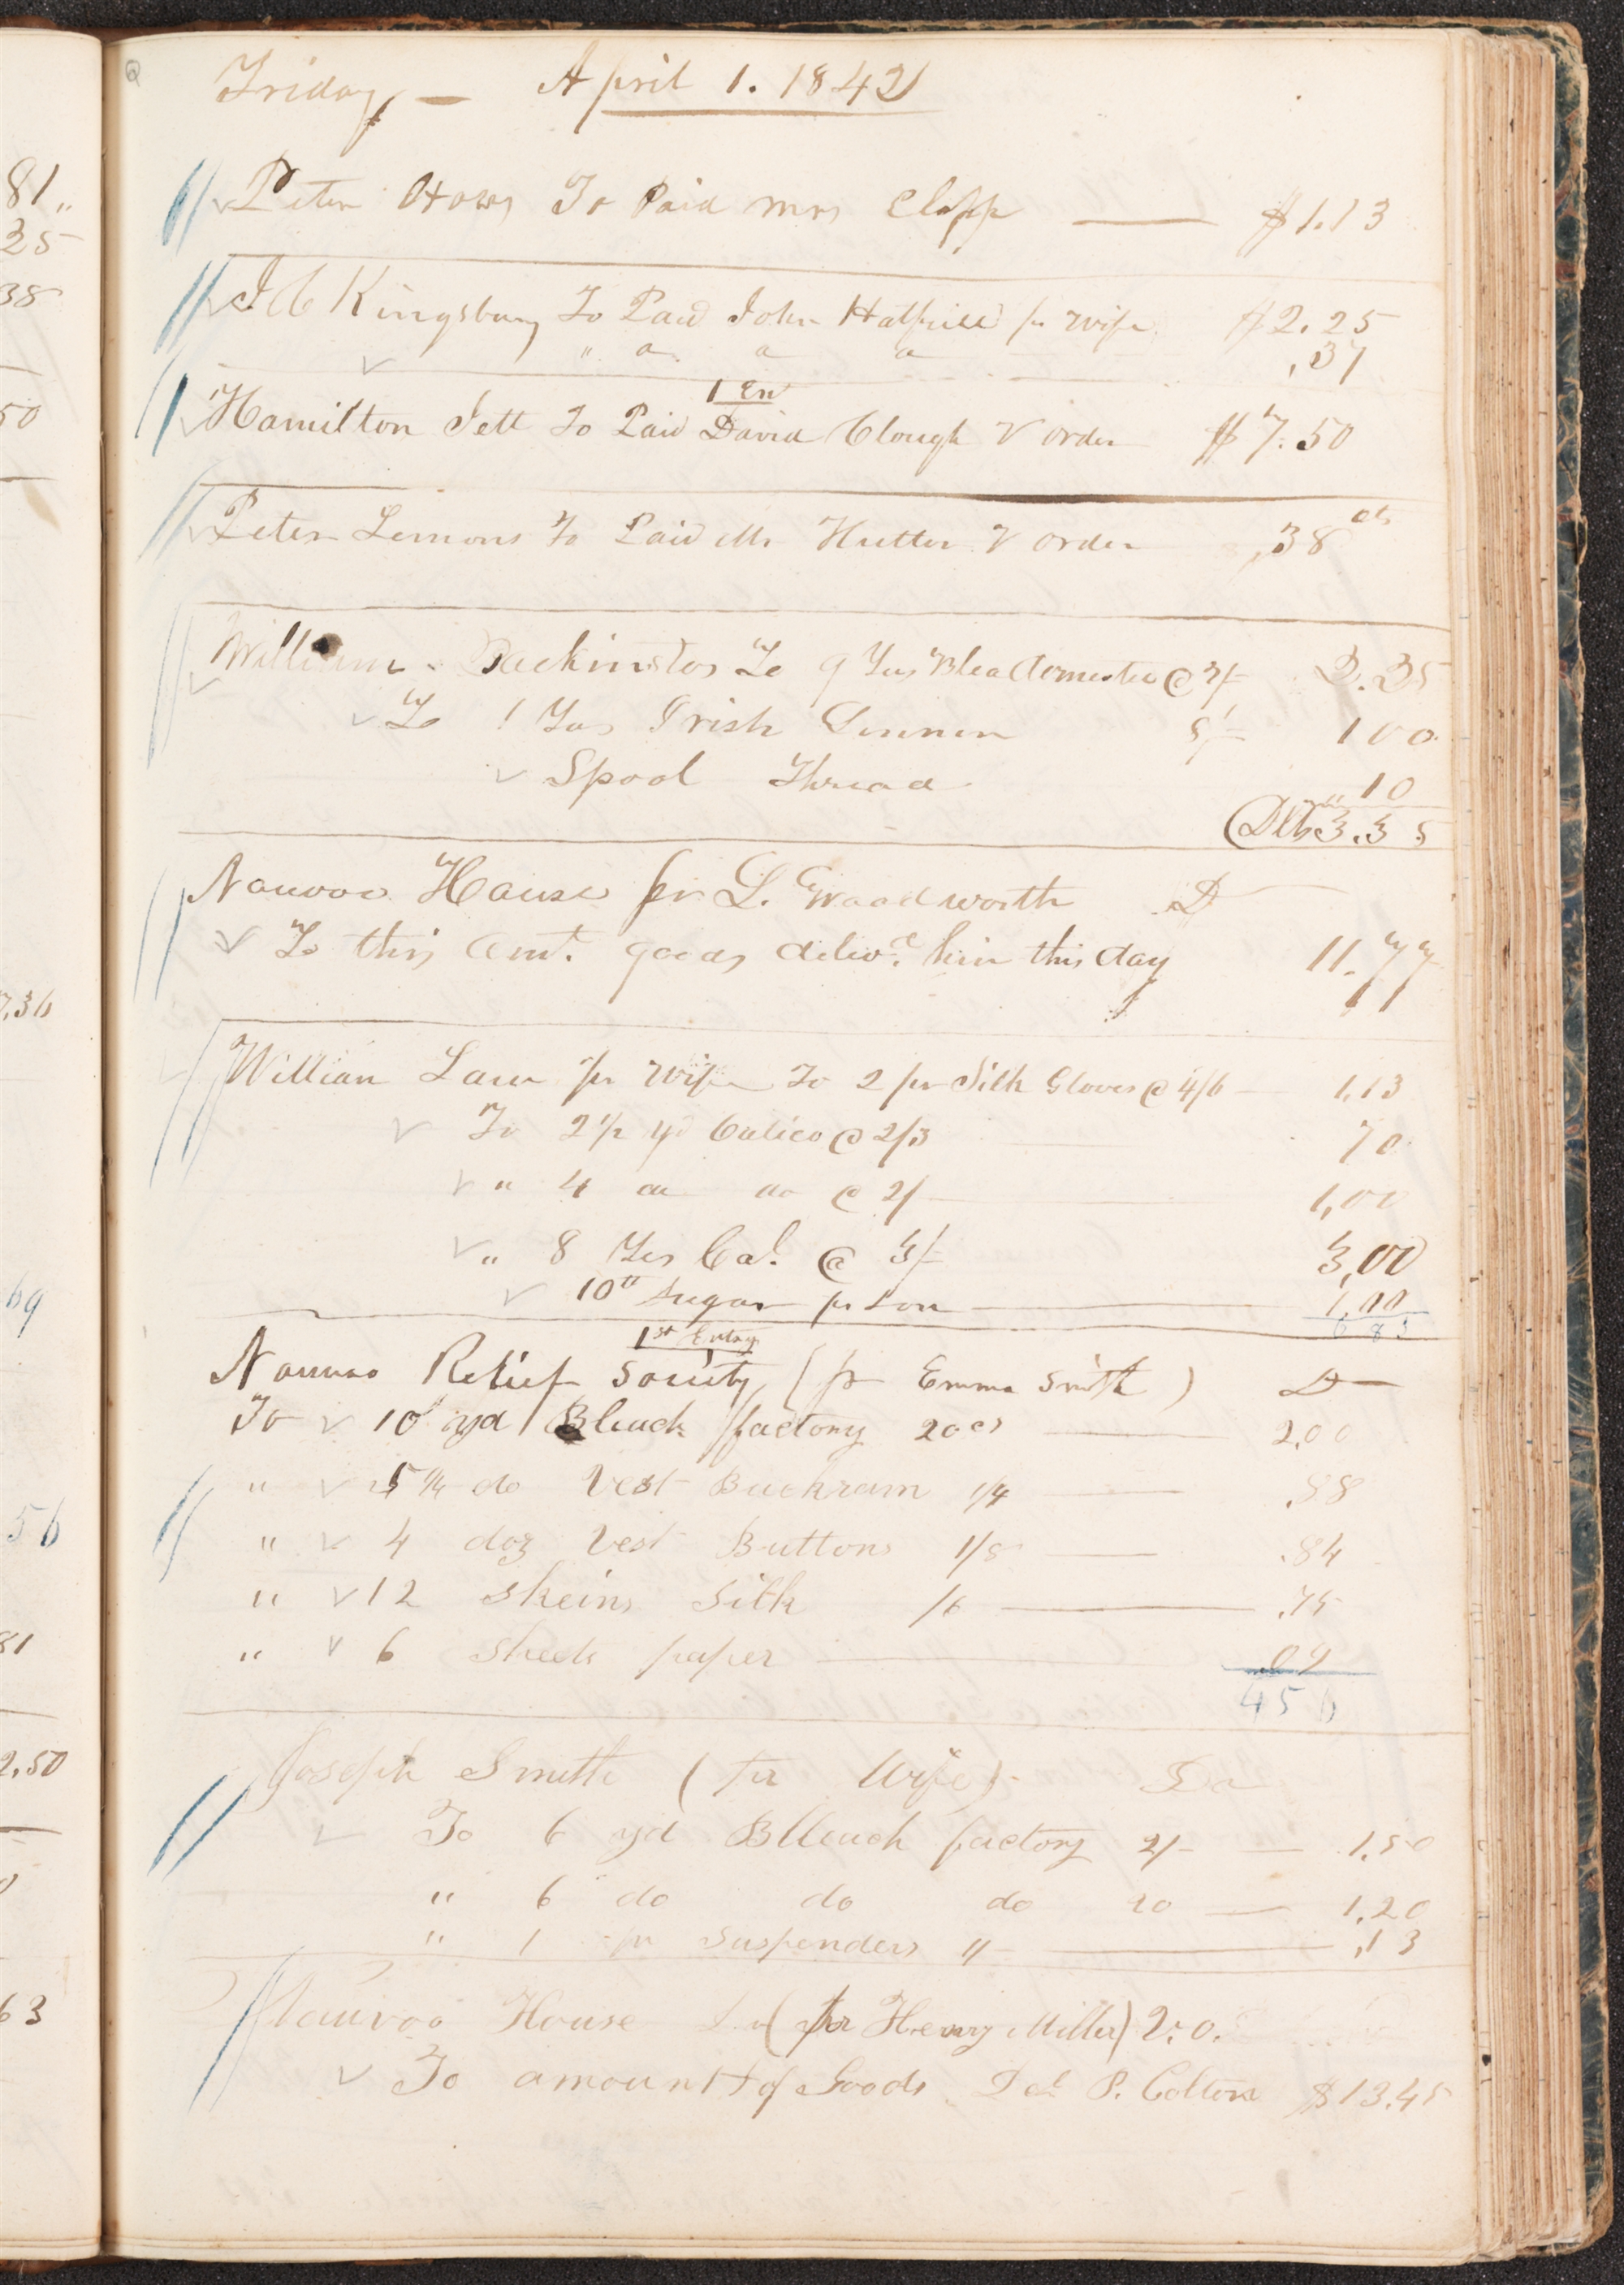 81 "
25
38
50
7.36
69
56
81
2.50
63
Friday, — April 1. 1842
Peter Haws To Paid Mrs Clapp — $1.13
J C Kingsbury To Paid John Hatfield pr wife $2.25
" do do do .37
1 En
Hamilton Jett To Paid David Clough pr order $7.50
Peter Lemons To Paid Mr Hutter pr order ,38 cts
William Backinstos To 9 Yds Blea Domestic @ 2/– 2.25
To 1 Yds Irish Linnen 8/– 100
Spool Thread "10
Dlls 3.35
Nauvoo House pr L. Woodworth Dr
To this Amt. goods delivd. him this day 11.77
William Law pr wife To 2 pr Silk Gloves @ 4/6 — 1.13
To 2 1/2 yd Calico @ 2/3 70
" 4 do do @ 2/ — 1,00
" 8 Yds Cal. @ 3/– 3,00
10 lb Sugar pr Son — 1.00
6 83
1st Entry
Nauvoo Relief Society, (pr Emma Smith) Dr —
To 10 yd Bleach factory 20cs — 2.00
" 5 1/4 do Vest Buckram 1/4 — .88
" 4 doz Vest Buttons 1/8 — .84
" 12 skeins Silk /6 — .75
" 6 sheets paper — .09
4 5 6
Joseph Smith (per Wife) Dr
To 6 yd Blleach factory 2/– — 1.50
" 6 do do do 20 — 1.20
" 1 pr Suspenders 1/– — ,13
Nauvoo House Dr (per Henry Miller)
To amount of Goods Del P. Colton $13.45